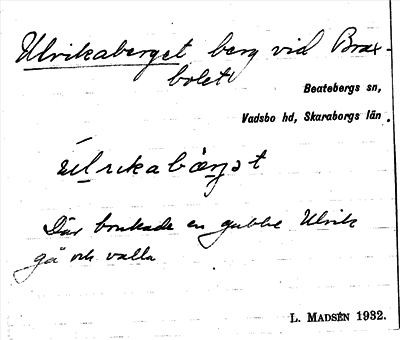 Ulrikaberget berg vid Brax-
bolet
Beatebergs sn,
Vadsbo hd, Skaraborgs län.
Där brukade en gubbe Ulrik
gå och valla
L. MADSÉN 1932.